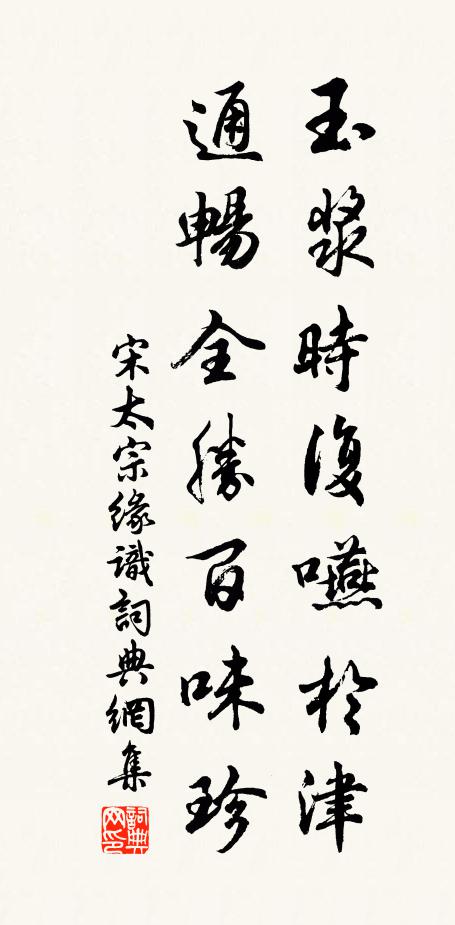 玉漿時復嚥於津
通暢全勝百味珍
宋太宗緣識詞典網集
詞典
网印